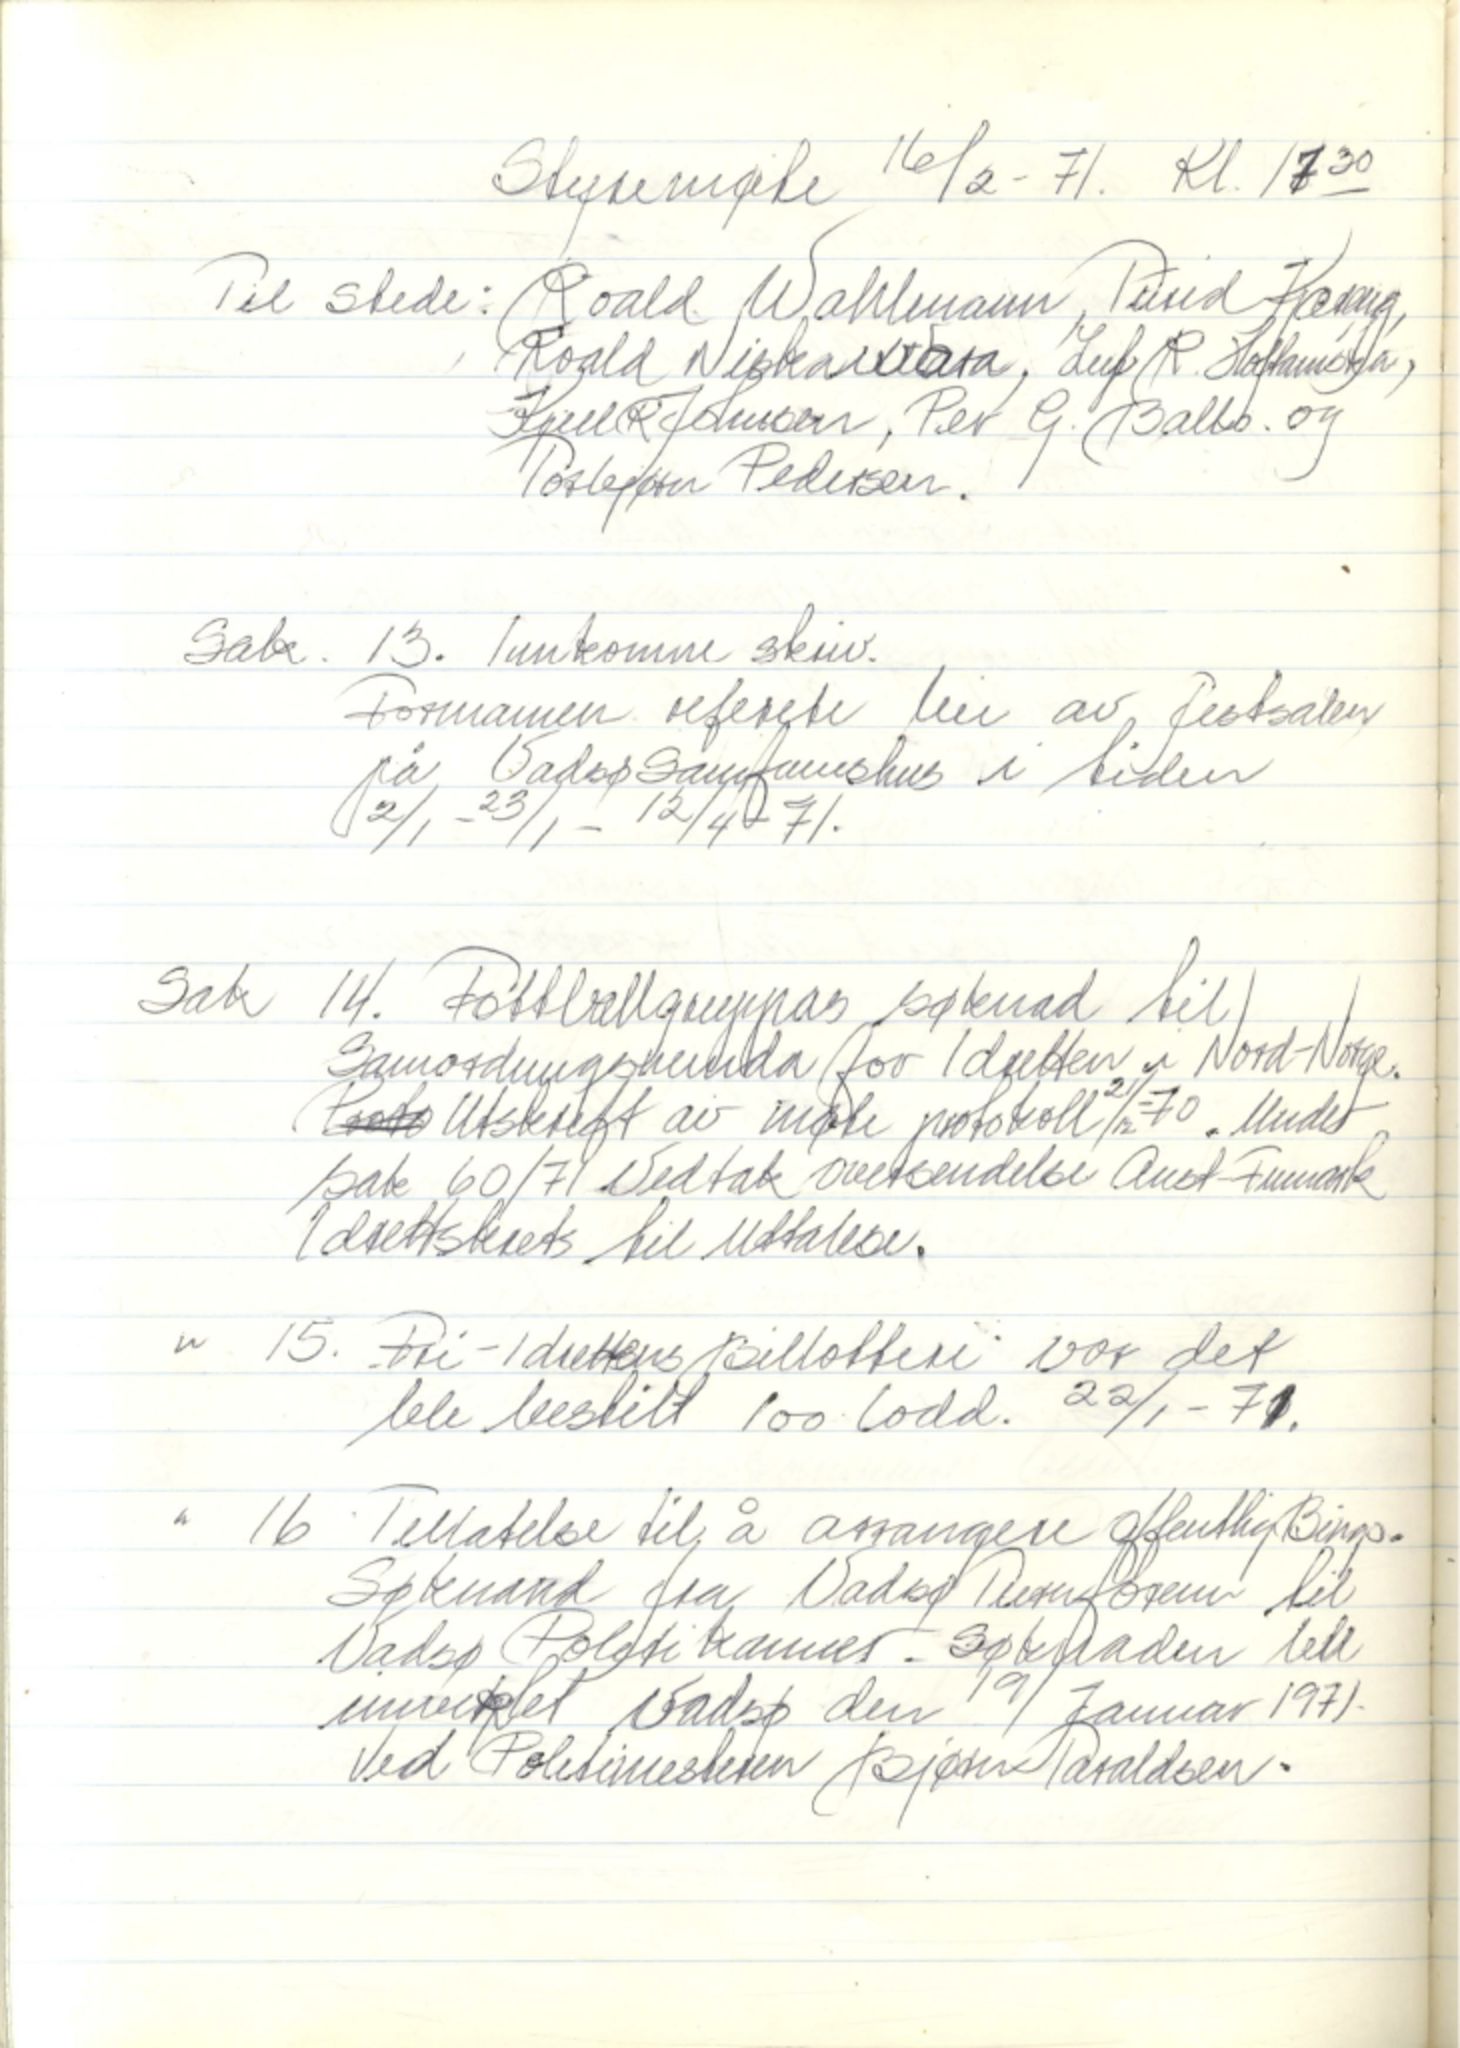 Styremøte 16/2-71. Kl. 17 30
Til stede: Roald Wahlmann, Turid
Roald Niskavaara, Leif R.
Kjell R Johnsen, Per G. Balto. og
Torbjørn Pedersen.
Sak. 13. Innkomne skriv.
Formannen referete leie av festsalen
på Vadsø Samfunnshus i tiden
2/1 - 23/1 - 12/4 - 71.
Sak 14. Fottballgruppas søknad til
Samordungsnemda for Idretten i Nord-Norge.
Utskrift av møte protokoll 21/12-70. Under
sak 60/71 Vedtak oversendelse Aust-Finmark
Idrettskrets til Uttalese.
" 15. Fri-Idrettens Billotteri vor det
ble bestilt 100 lodd. 22/1-71.
" 16 Tillatelse til å arrangere offentlig Bingo.
Søknand fra Vadsø Turnforenn til
Vadsø Politikammer. Søknaden ble
innvilget Vadsø den 19/ Januar 1971.
Ved Politimesteren Bjørn Taraldsen.